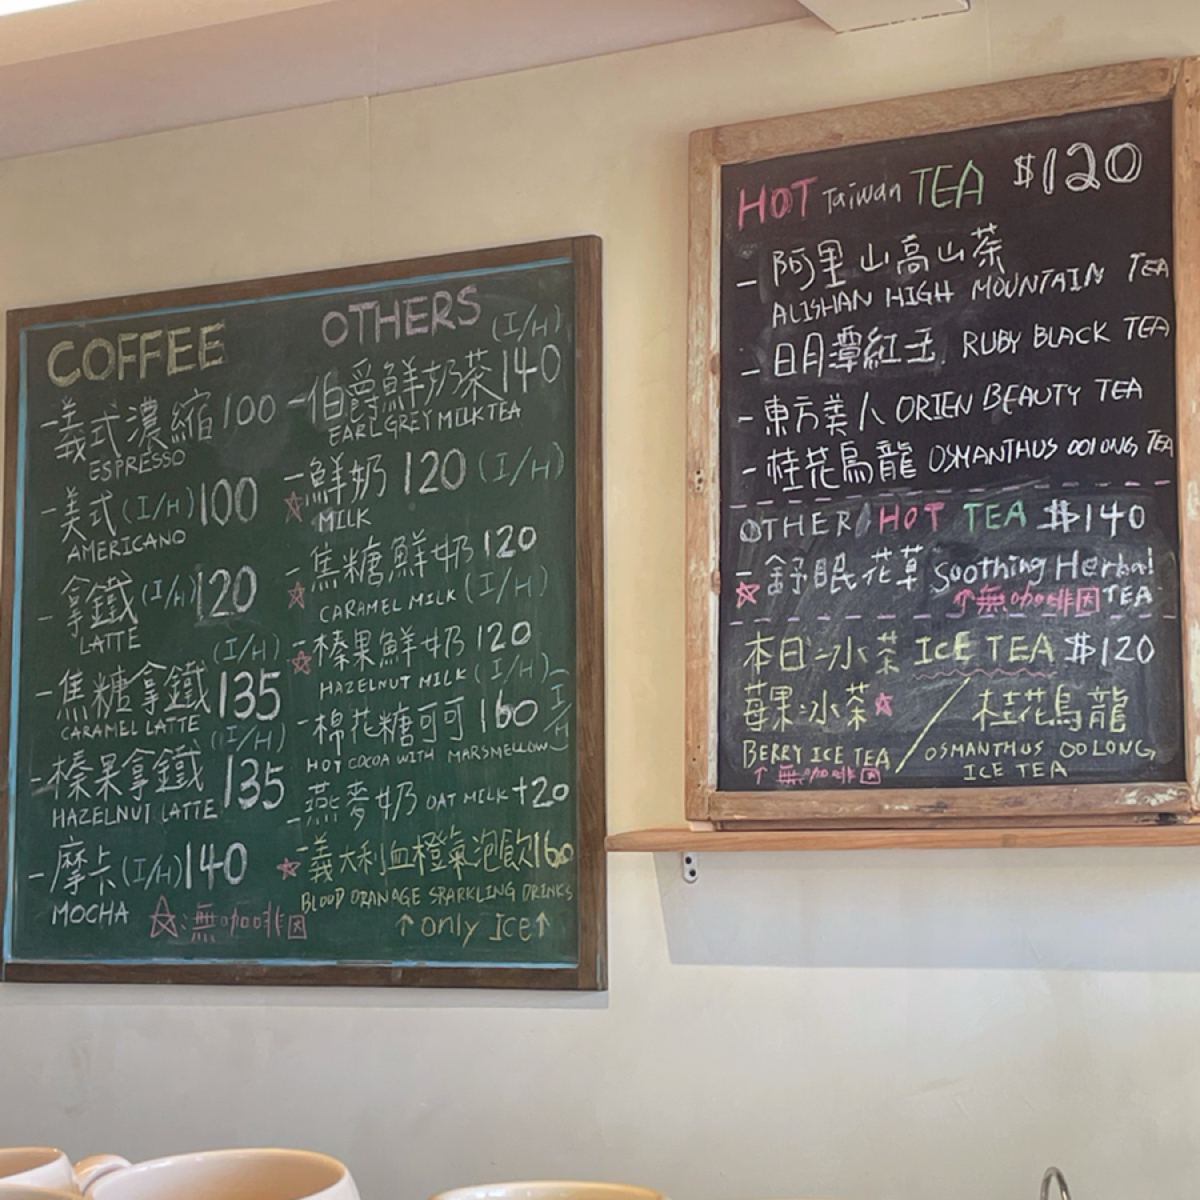 COFFEE
義式濃縮 100
ESPRESSO
美式 (I/H) 100
AMERICANO
拿鐵 (I/H) 120
LATTE
(I/H)
焦糖拿鐵 135
CARAMEL LATTE
(I/H)
榛果拿鐵 135
HAZELNUT LATTE
摩卡 (I/H) 140
MOCHA
☆:無咖啡因
OTHERS (I/H)
伯爵鮮奶茶 140
EARL GREY MILK TEA
鮮奶 120 (I/H)
☆ MILK
焦糖鮮奶 120
☆ CARAMEL MILK (I/H)
榛果鮮奶 120
☆ HAZELNUT MILK (I/H)
棉花糖可可 160 (I/H)
HOT COCOA WITH MARSMELLOW
燕麥奶 OAT MILK +20
☆ 義大利血橙氣泡飲 160
BLOOD ORANAGE SPARKLING DRINKS
↑ only Ice ↑
HOT Taiwan TEA $120
- 阿里山高山茶
ALISHAN HIGH MOUNTAIN TEA
- 日月潭紅玉 RUBY BLACK TEA
- 東方美人 ORIEN BEAUTY TEA
- 桂花烏龍 OSMANTHUS OOLONG TEA
OTHER HOT TEA $140
- 舒眠花草 Soothing Herbal
☆ ↑無咖啡因 TEA
本日冰茶 ICE TEA $120
莓果冰茶☆ / 桂花烏龍
BERRY ICE TEA / OSMANTHUS OOLONG
↑無咖啡因 ICE TEA